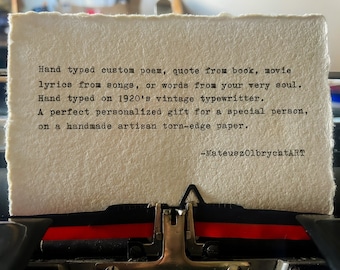 Hand typed custom poem, quote from book, movie
lyrics from songs, or words from your very soul.
Hand typed on 1920's vintage typewritter.
A perfect personalized gift for a special person,
on a handmade artisan torn-edge paper.
-MateuszOlbrychtART